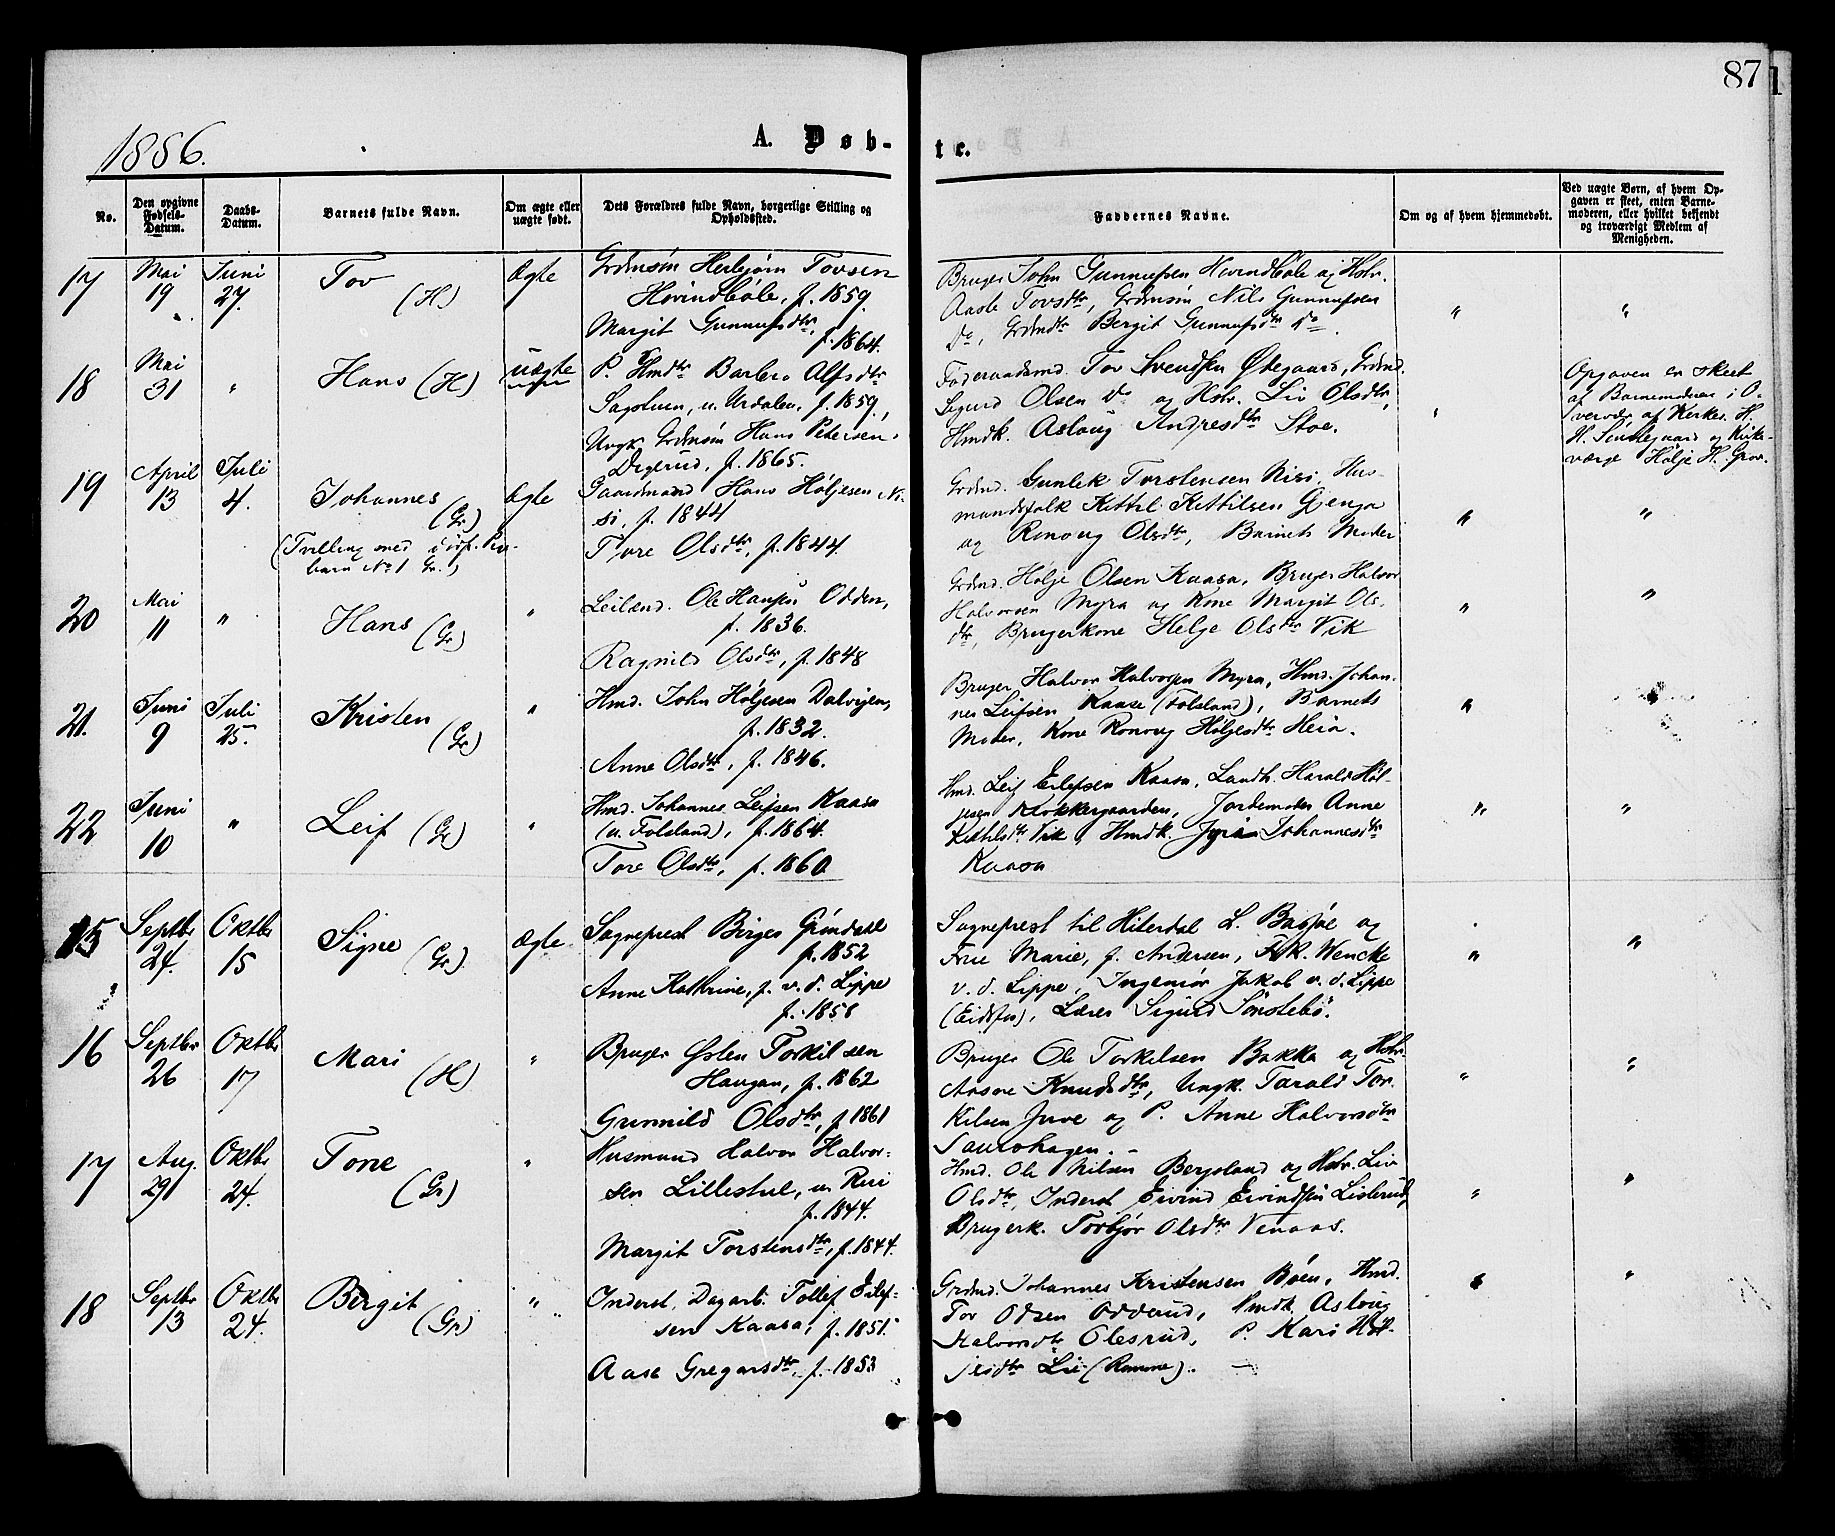 87
1886.
A. Døb-
te.
No.
Den opgivne Fødsels-Datum.
Daabs-Datum.
Barnets fulde Navn.
Om ægte eller uægte født.
Dets Forældres fulde Navn, borgerlige Stilling og Opholdssted.
Faddernes Navne.
Om og af hvem hjemmedøbt.
Ved uægte Børn, af hvem Opgaven er skeet, enten Barnemoderen, eller hvilket bekjendt og troværdigt Medlem af Menigheden.
17 Mai 19 Juni 27. Tov (H) Ægte
Grdmsøn Herbjørn Tovsen
Hovindbøle, f. 1859.
Margit Gunnufsdtr,
f. 1864.
Bruger John Gunnufsen Hovindbøle og Hstr.
Aasle Tovsdtr, Grdmsøn Nils Gunnufsen
do, Grdmdtr Bergit Gunnufsdtr do. " "
18 Mai 31 " Hans (H) uægte
P. Hmdtr Barbro Alfsdtr
u. Urdalen, f. 1859,
Ungk. Grdmsøn Hans Petersen
Digerud, f. 1865.
Føderaadsmd. Tov Svensken Østegaard, Grdmd.
Sigurd Olsen do og Hstr. Liv Olsdtr,
Hmdk. Aslaug Andresdtr Stoe. "
Opgaven er skeet
af Barnemoderen i O-
vervær af Kirkes.
H. og Kirke-
værge Hølje H. Grov.
19 April 13 Juli 4. Johannes (Gr) Ægte
(Tvilling med
barn No 1 Gr.)
Gaardmand Hans Høljesen Ni-
si, f. 1844
Tore Olsdtr, f. 1844.
Grdmd. Gunlek Torstensen Nisi, Hus-
mandsfolk Kittil Kittilsen Gjenga
og Ronoug Olsdtr, Barnets Moder " "
20 Mai 11 " Hans (Gr) "
Leilænd. Ole Hansen Odden,
f. 1836.
Ragnild Olsdtr, f. 1848
Grdmd. Hølje Olsen Kaasa, Bruger Halvor
Halvorsen Myra og Kone Margit Ols-
dtr, Brugerkone Helge Olsdtr Vik " "
21. Juni 9 Juli 25. Kristen (Gr) "
Hmd. John Høljesen Dalvejen,
f. 1832.
Anne Olsdtr, f. 1846.
Bruger Halvor Halvorsen Myra, Hmd. Johan-
nes Leifsen Kaase (Folsland), Barnets
Moder, Kone Ronoug Høljesdtr Heia. "
22 Juni 10 " Leif (Gr) "
Hmd. Johannes Leifsen Kaasa
(u. Folsland), f. 1864.
Tore Olsdtr, f. 1860
Hmd. Leif Eilefsen Kaasa, Landh. Harald Høl-
jesen Klokkergaarden, Jordemoder Anne
Kittilsdtr Vik, Hmdk. Johannesdtr
Kaasa " "
15 Septbr 24. Oktbr 15 Signe (Gr) Ægte
Sogneprest Birger Grindahl
f. 1852
Anne Kathrine, f. v. d. Lippe
f. 1858
Sogneprest til Hiterdal L. Basøe og
Frue Marie, f. Andersen, Frk. Wencke
v. d. Lippe, Ingeniør Jakob v. d. Lippe
(Eidsfos), Lærer Sigurd Sønstebø. " "
16 Septbr 26 Oktbr 17 Mari (H) "
Bruger Østen Torkilsen
Haugan, f. 1862
Gunnild Olsdtr, f. 1861
Bruger Ole Torkilsen Bakka og Hstr.
Aasne Knudsdtr, Ungk. Tarald Tor-
kilsen Juve og P. Anne Halvorsdtr
" "
17 Aug. 29 Oktbr 24. Tone (Gr) "
Husmand Halvor Halvor-
sen Lillestul, u. Rui
f. 1844.
Margit Torstensdtr, f. 1844.
Hmd. Ole Nilsen Bergsland og Hstr. Liv
Olsdtr, Inderst Eivind Eivindsen Lislerud,
Brugerk. Torbjør Olsdtr Venaas. " "
18 Septbr 13 Oktbr 24. Birgit (Gr) "
Inderst, Dagarb. Tollef Eilef-
sen Kaasa, f. 1851.
Aase Gregarsdtr, f. 1853
Grdmd. Johannes Kristensen Bøen, Hmd.
Tor Olsen Odderud, Hmdk. Aslaug
Halvorsdtr Olesrud, P. Kari Høl-
jesdtr Lie (Ramme). " "